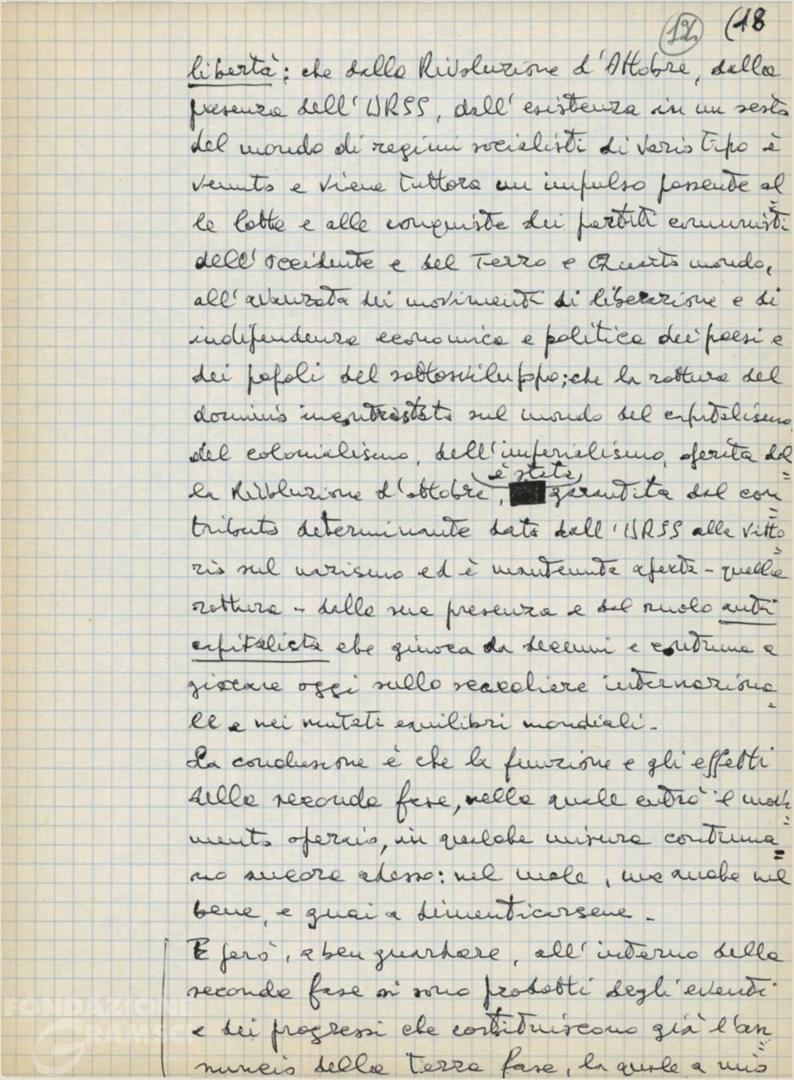 12 (18
libertà; che dalla Rivoluzione d'Ottobre, dalla
presenza dell'URSS, dall'esistenza in un sesto
del mondo di regimi socialisti di vario tipo è
venuto e viene tuttora un impulso possente al=
le lotte e alle conquiste dei partiti comunisti
dell'occidente e del Terzo e Quarto mondo,
all'avanzata dei movimenti di liberazione e di
indipendenza economica e politica dei paesi e
dei popoli del sottosviluppo; che la rottura del
dominio incontrastato sul mondo del capitalismo,
del colonialismo, dell'imperialismo, aperta dal=
la Rivoluzione d'ottobre, è stata garantita dal con=
tributo determinante dato dall'URSS alla vitto=
ria sul nazismo ed è mantenuta aperta - quella
rottura - dalla sua presenza e dal ruolo anti
capitalista che giuoca da decenni e continua a
giocare oggi sullo scacchiere internaziona=
le e nei mutati equilibri mondiali.
La conclusione è che la funzione e gli effetti
della seconda fase, nella quale entrò il movi=
mento operaio, in qualche misura continua=
no ancora adesso: nel male, ma anche nel
bene, e guai a dimenticarsene.
E però, a ben guardare, all'interno della
seconda fase si sono prodotti degli eventi
e dei progressi che costituiscono già l'an=
nuncio della terza fase, la quale a mio
FONDAZIONE
GRAMSCI